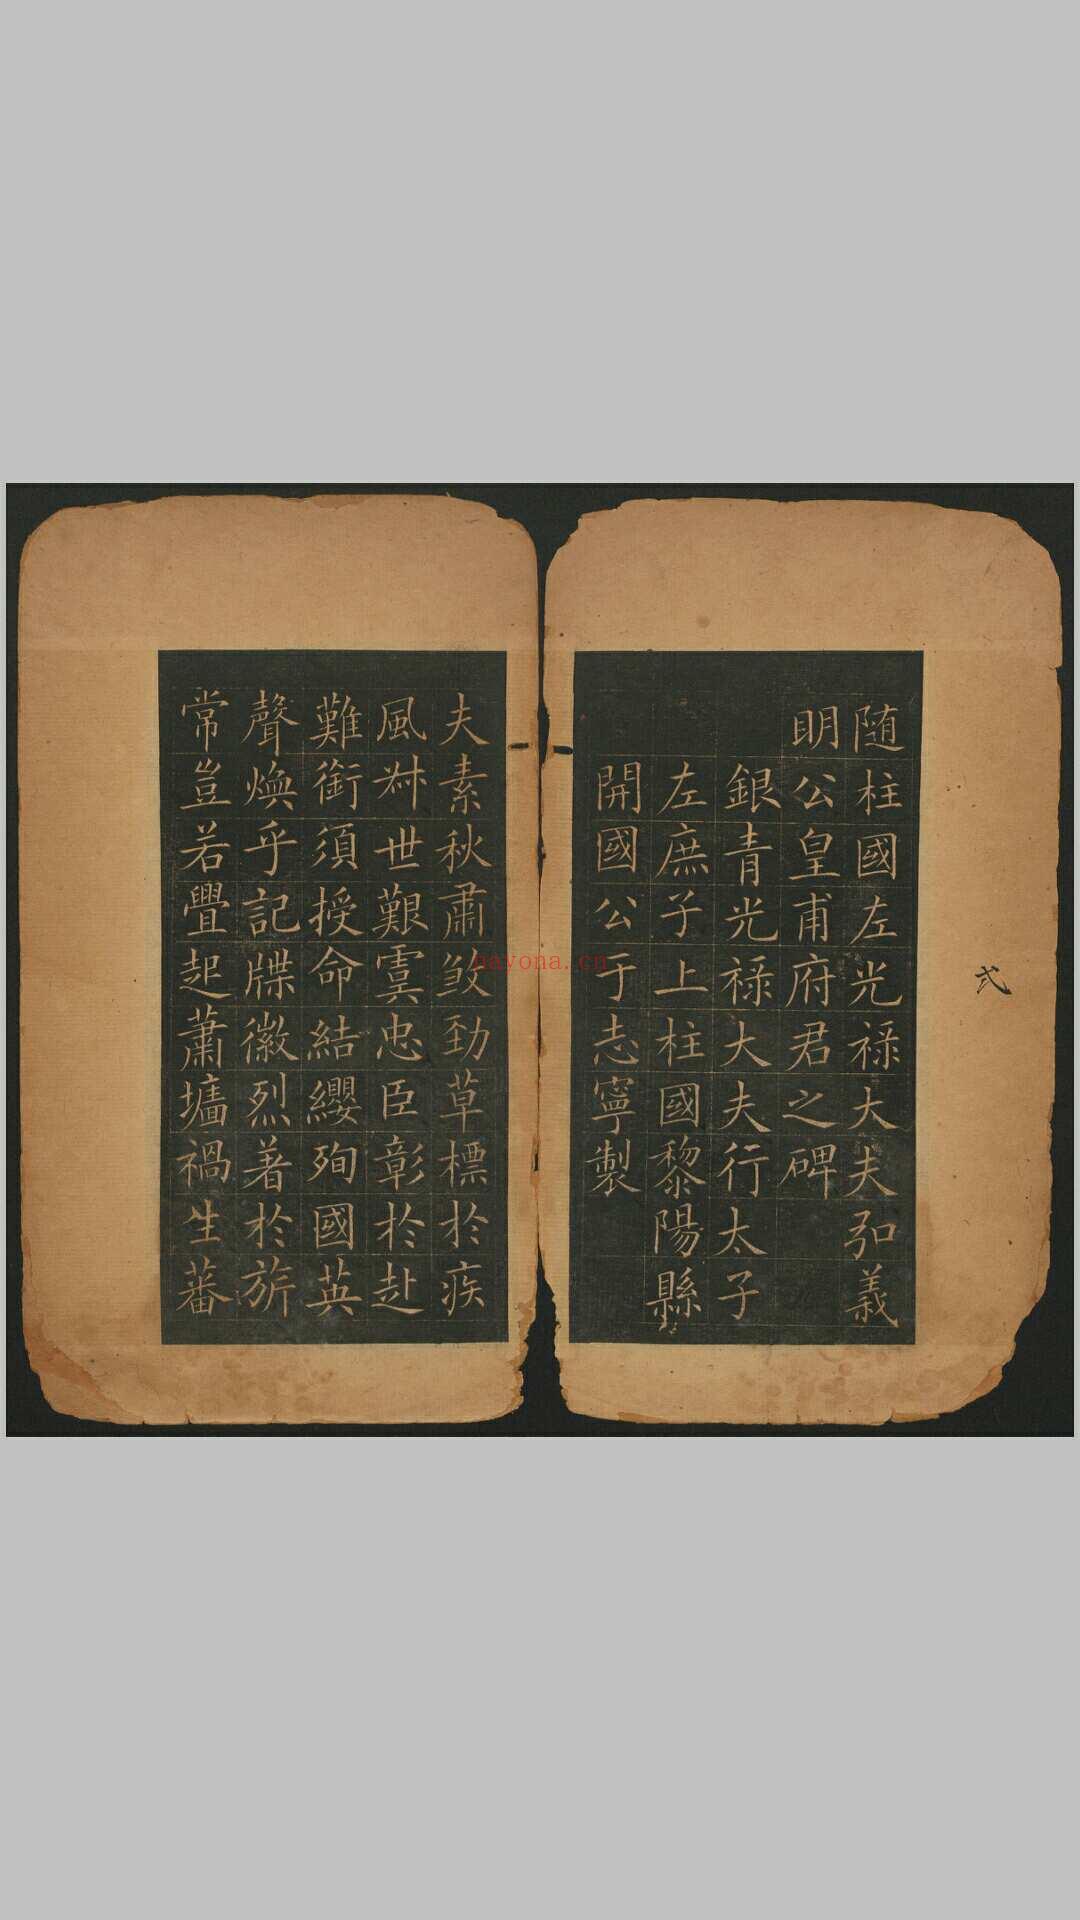 随柱國左光祿大夫弘義
明公皇甫府君之碑
銀青光祿大夫行太子
左庶子上柱國黎陽縣
開國公于志寧製
夫素秋肅煞勁草標於疾
風叔世艱虞忠臣彰於赴
難銜須授命結纓殉國英
聲煥乎記牒徽烈著於旂
常豈若舋起蕭墻禍生蕃
弍
nayona.cn